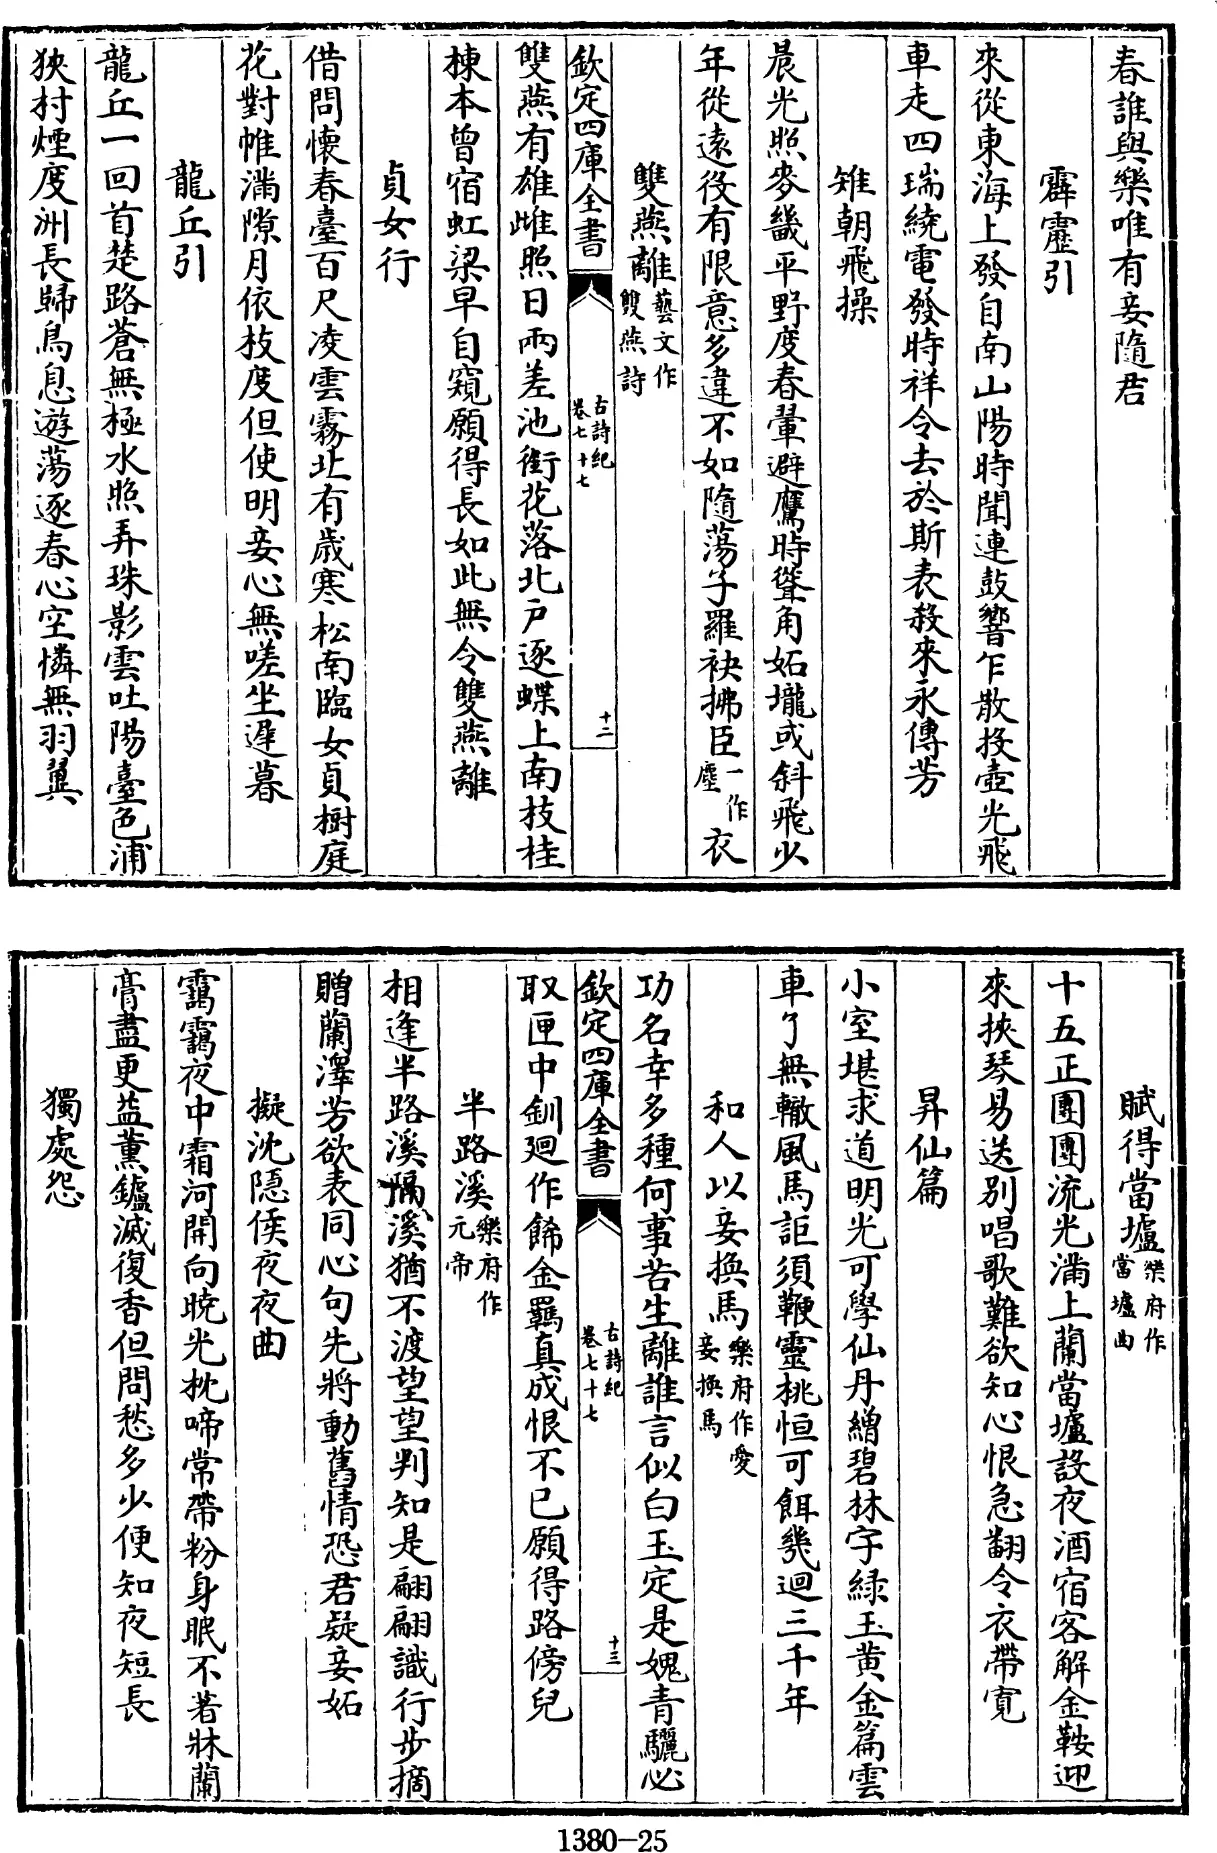 春誰與樂唯有妾隨君
霹靂引
來從東海上發自南山陽時聞連鼓響乍散投壺光飛
車走四瑞繞電發時祥令去於斯表殺來永傳芳
雉朝飛操
晨光照麥畿平野度春翬避鷹時聳角妬壠或斜飛少
年從遠役有限意多違不如隨蕩子羅袂拂臣一作塵衣
雙燕離藝文作雙燕詩
欽定四庫全書
古詩紀卷七十七
十二
雙燕有雄雌照日兩差池銜花落北戸逐蝶上南枝桂
棟本曾宿虹梁早自窺願得長如此無令雙燕離
貞女行
借問懷春臺百尺凌雲霧北有歲寒松南臨女貞樹庭
花對帷滿隙月依枝度但使明妾心無嗟坐遲暮
龍丘引
龍丘一回首楚路蒼無極水照弄珠影雲吐陽臺色浦
狹村煙度洲長歸鳥息遊蕩逐春心空憐無羽翼
賦得當壚樂府作當壚曲
十五正團團流光滿上蘭當壚設夜酒宿客解金鞍迎
來挾琴易送別唱歌難欲知心恨急翻令衣帶寛
昇仙篇
小室堪求道明光可學仙丹繒碧林字緑玉黄金篇雲
車了無轍風馬詎須鞭靈桃恒可餌幾迴三千年
和人以妾換馬樂府作愛妾換馬
功名幸多種何事苦生離誰言似白玉定是媿青驪必
欽定四庫全書
古詩紀卷七十七
十三
取匣中釧廻作飾金羈真成恨不已願得路傍兒
半路溪樂府作元帝
相逢半路溪隔溪猶不渡望望判知是翩翩識行步摘
贈蘭澤芳欲表同心句先將動舊情恐君疑妾妬
擬沈隠侯夜夜曲
靄靄夜中霜河開向暁光枕啼常帶粉身眠不著牀蘭
膏盡更益薰鑪滅復香但問愁多少便知夜短長
獨處怨
1380-25